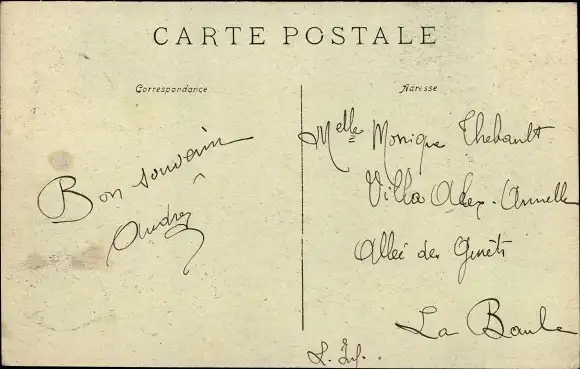 CARTE POSTALE
Correspondance
Adresse
Bon souvenir
Audrey
Melle Monique Thebault
Villa Alex-Annelle
Allée des Genêts
La Baule
L. Inf.